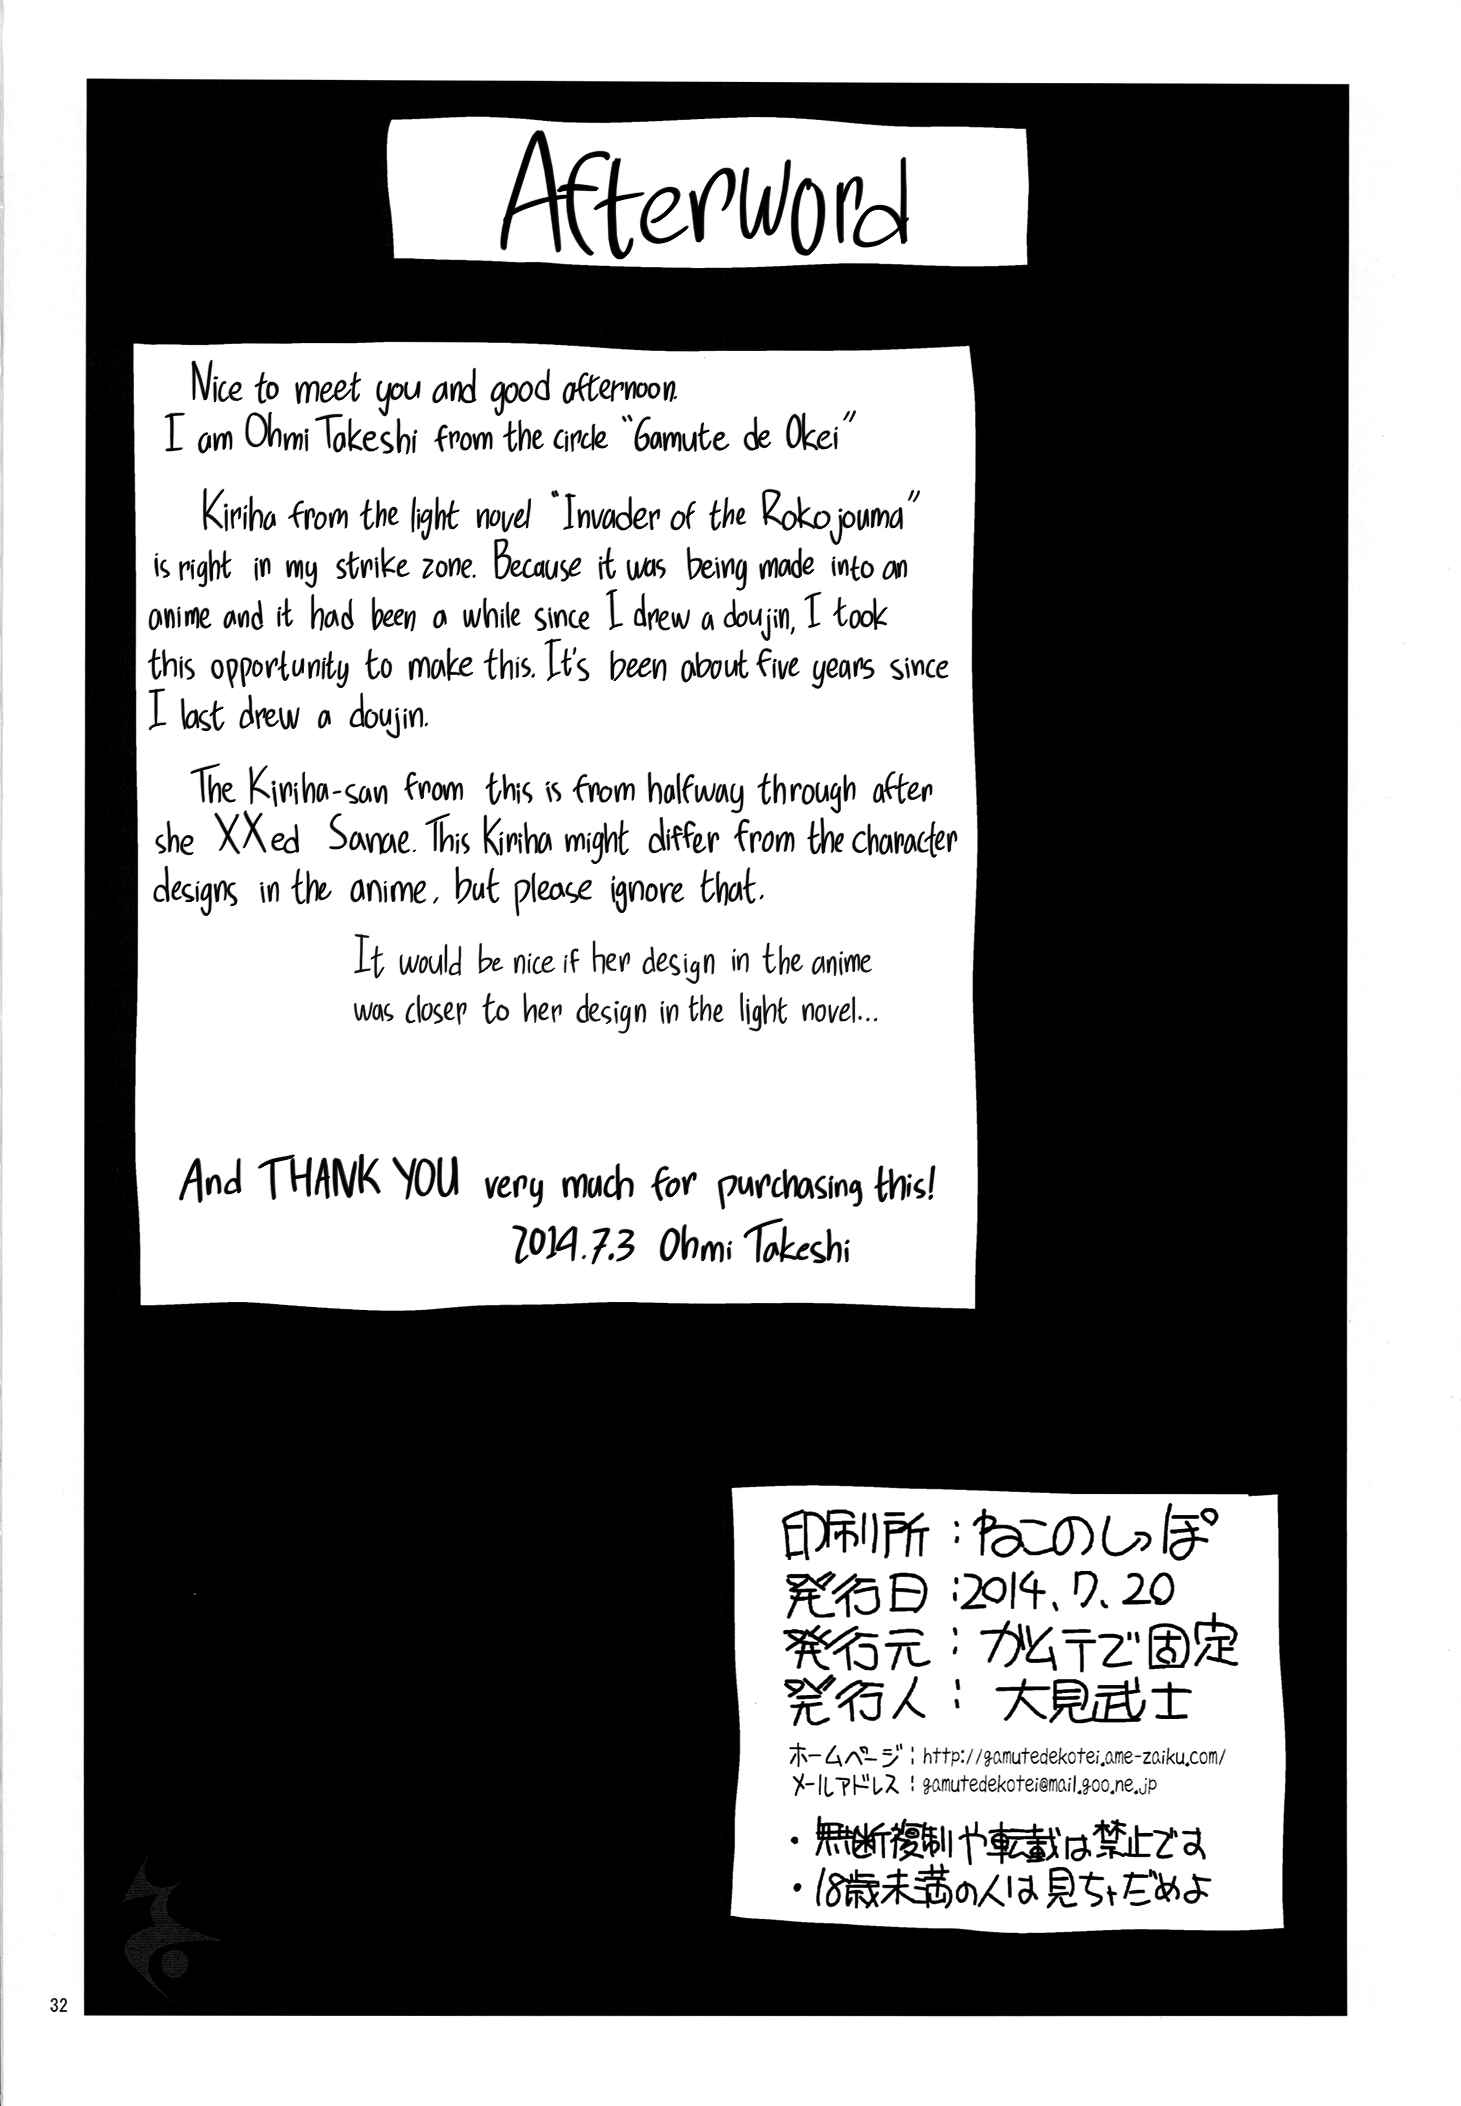 Afterword
Nice to meet you and good afternoon.
I am Ohmi Takeshi from the circle "Gamute de Okei"
Kiriha from the light novel "Invader of the Rokojouma"
is right in my strike zone. Because it was being made into an
anime and it had been a while since I drew a doujin, I took
this opportunity to make this. It's been about five years since
I last drew a doujin.
The Kiriha-san from this is from halfway through after
she XXed Sanae. This Kiriha might differ from the character
designs in the anime, but please ignore that.
It would be nice if her design in the anime
was closer to her design in the light novel...
And THANK YOU very much for purchasing this!
2014.7.3 Ohmi Takeshi
印刷所：ねこのしっぽ
発行日：2014、7、20
発行元：ガムテで固定
発行人：大見武士
ホームページ：http://gamutedekotei.ame-zaiku.com/
メールアドレス：gamutedekotei@mail.goo.ne.jp
・無断複制や転載は禁止です
・18歳未満の人は見ちゃだめよ
32